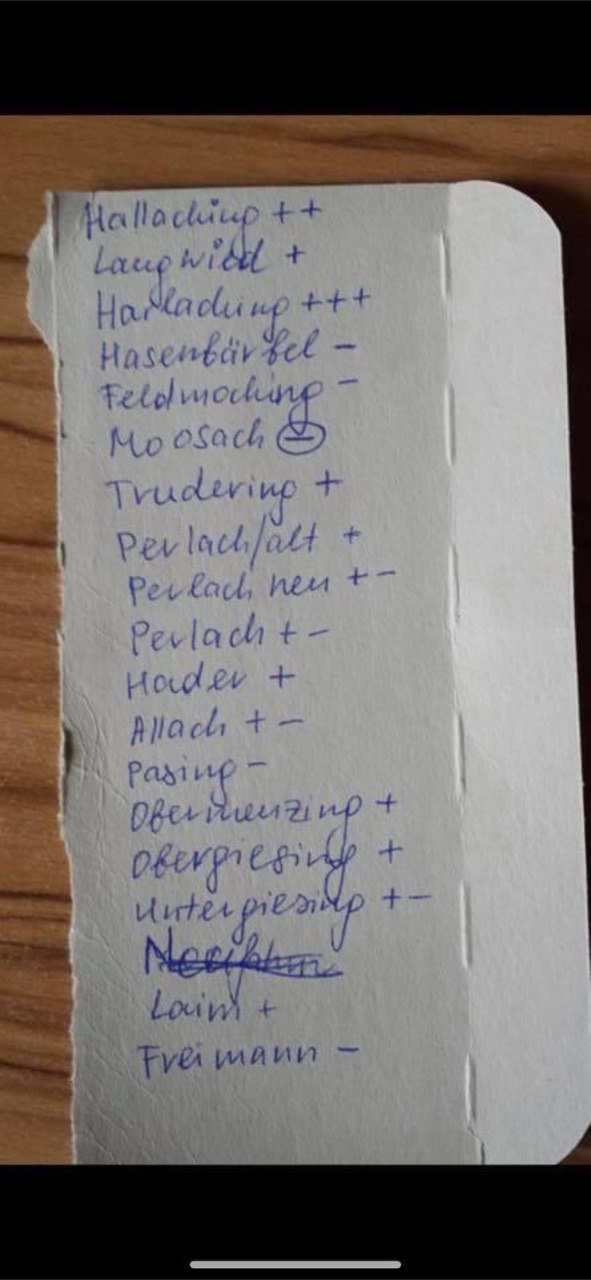 Hallaching ++
Langwied +
Harlaching +++
Hasenbärbel -
Feldmoching -
Moosach -
Trudering +
Perlach/alt +
Perlach neu + -
Perlach + -
Hader +
Allach + -
Pasing -
Obermenzing +
Obergiesing +
Untergiesing + -
Laim +
Freimann -